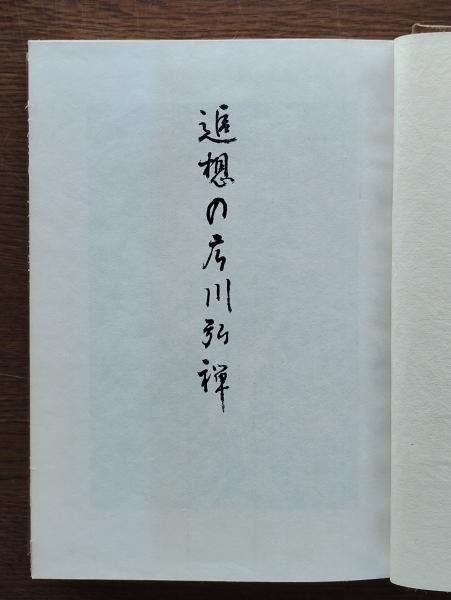 追想の広川弘禅